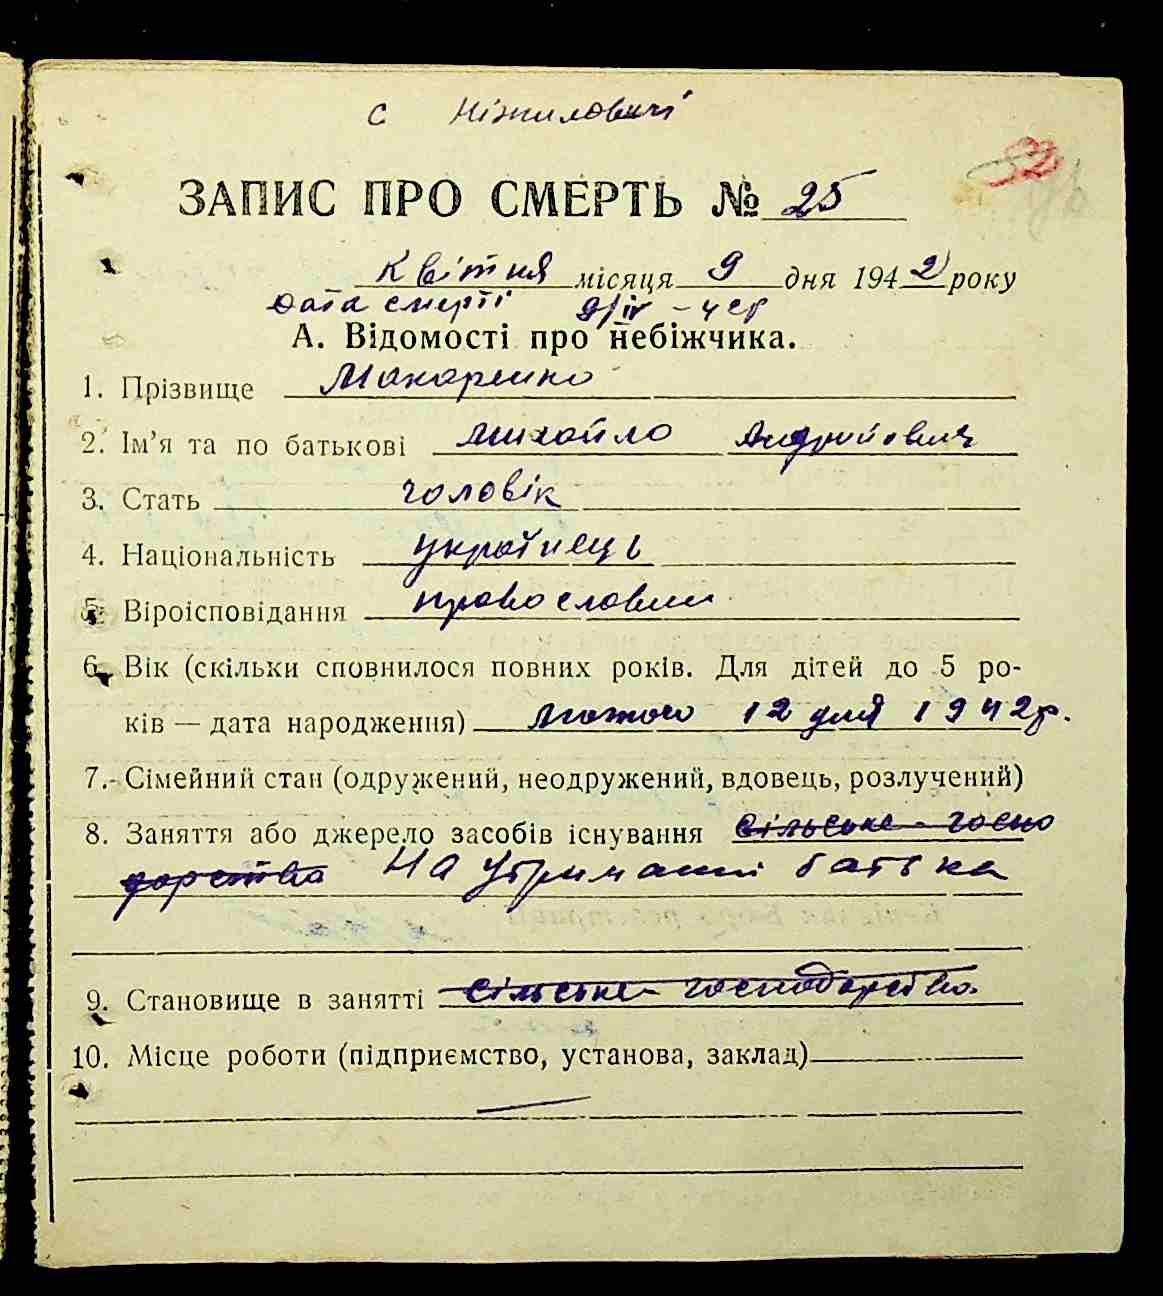 с Ніжиловичі
52
ЗАПИС ПРО СМЕРТЬ № 25
квітня місяця 9 дня 1942 року
Дата смерті 9/IV – 42р
А. Відомості про небіжчика.
1. Прізвище Макаренко
2. Ім'я та по батькові Михайло Андрійович
3. Стать чоловік
4. Національність українець
5. Віроісповідання православний
6. Вік (скільки сповнилося повних років. Для дітей до 5 ро-
ків — дата народження) лютого 12 дня 1942р.
7. Сімейний стан (одружений, неодружений, вдовець, розлучений)
8. Заняття або джерело засобів існування сільське-госпо
дорства На утриманні батька
9. Становище в занятті сільське-господарство.
10. Місце роботи (підприємство, установа, заклад)
—